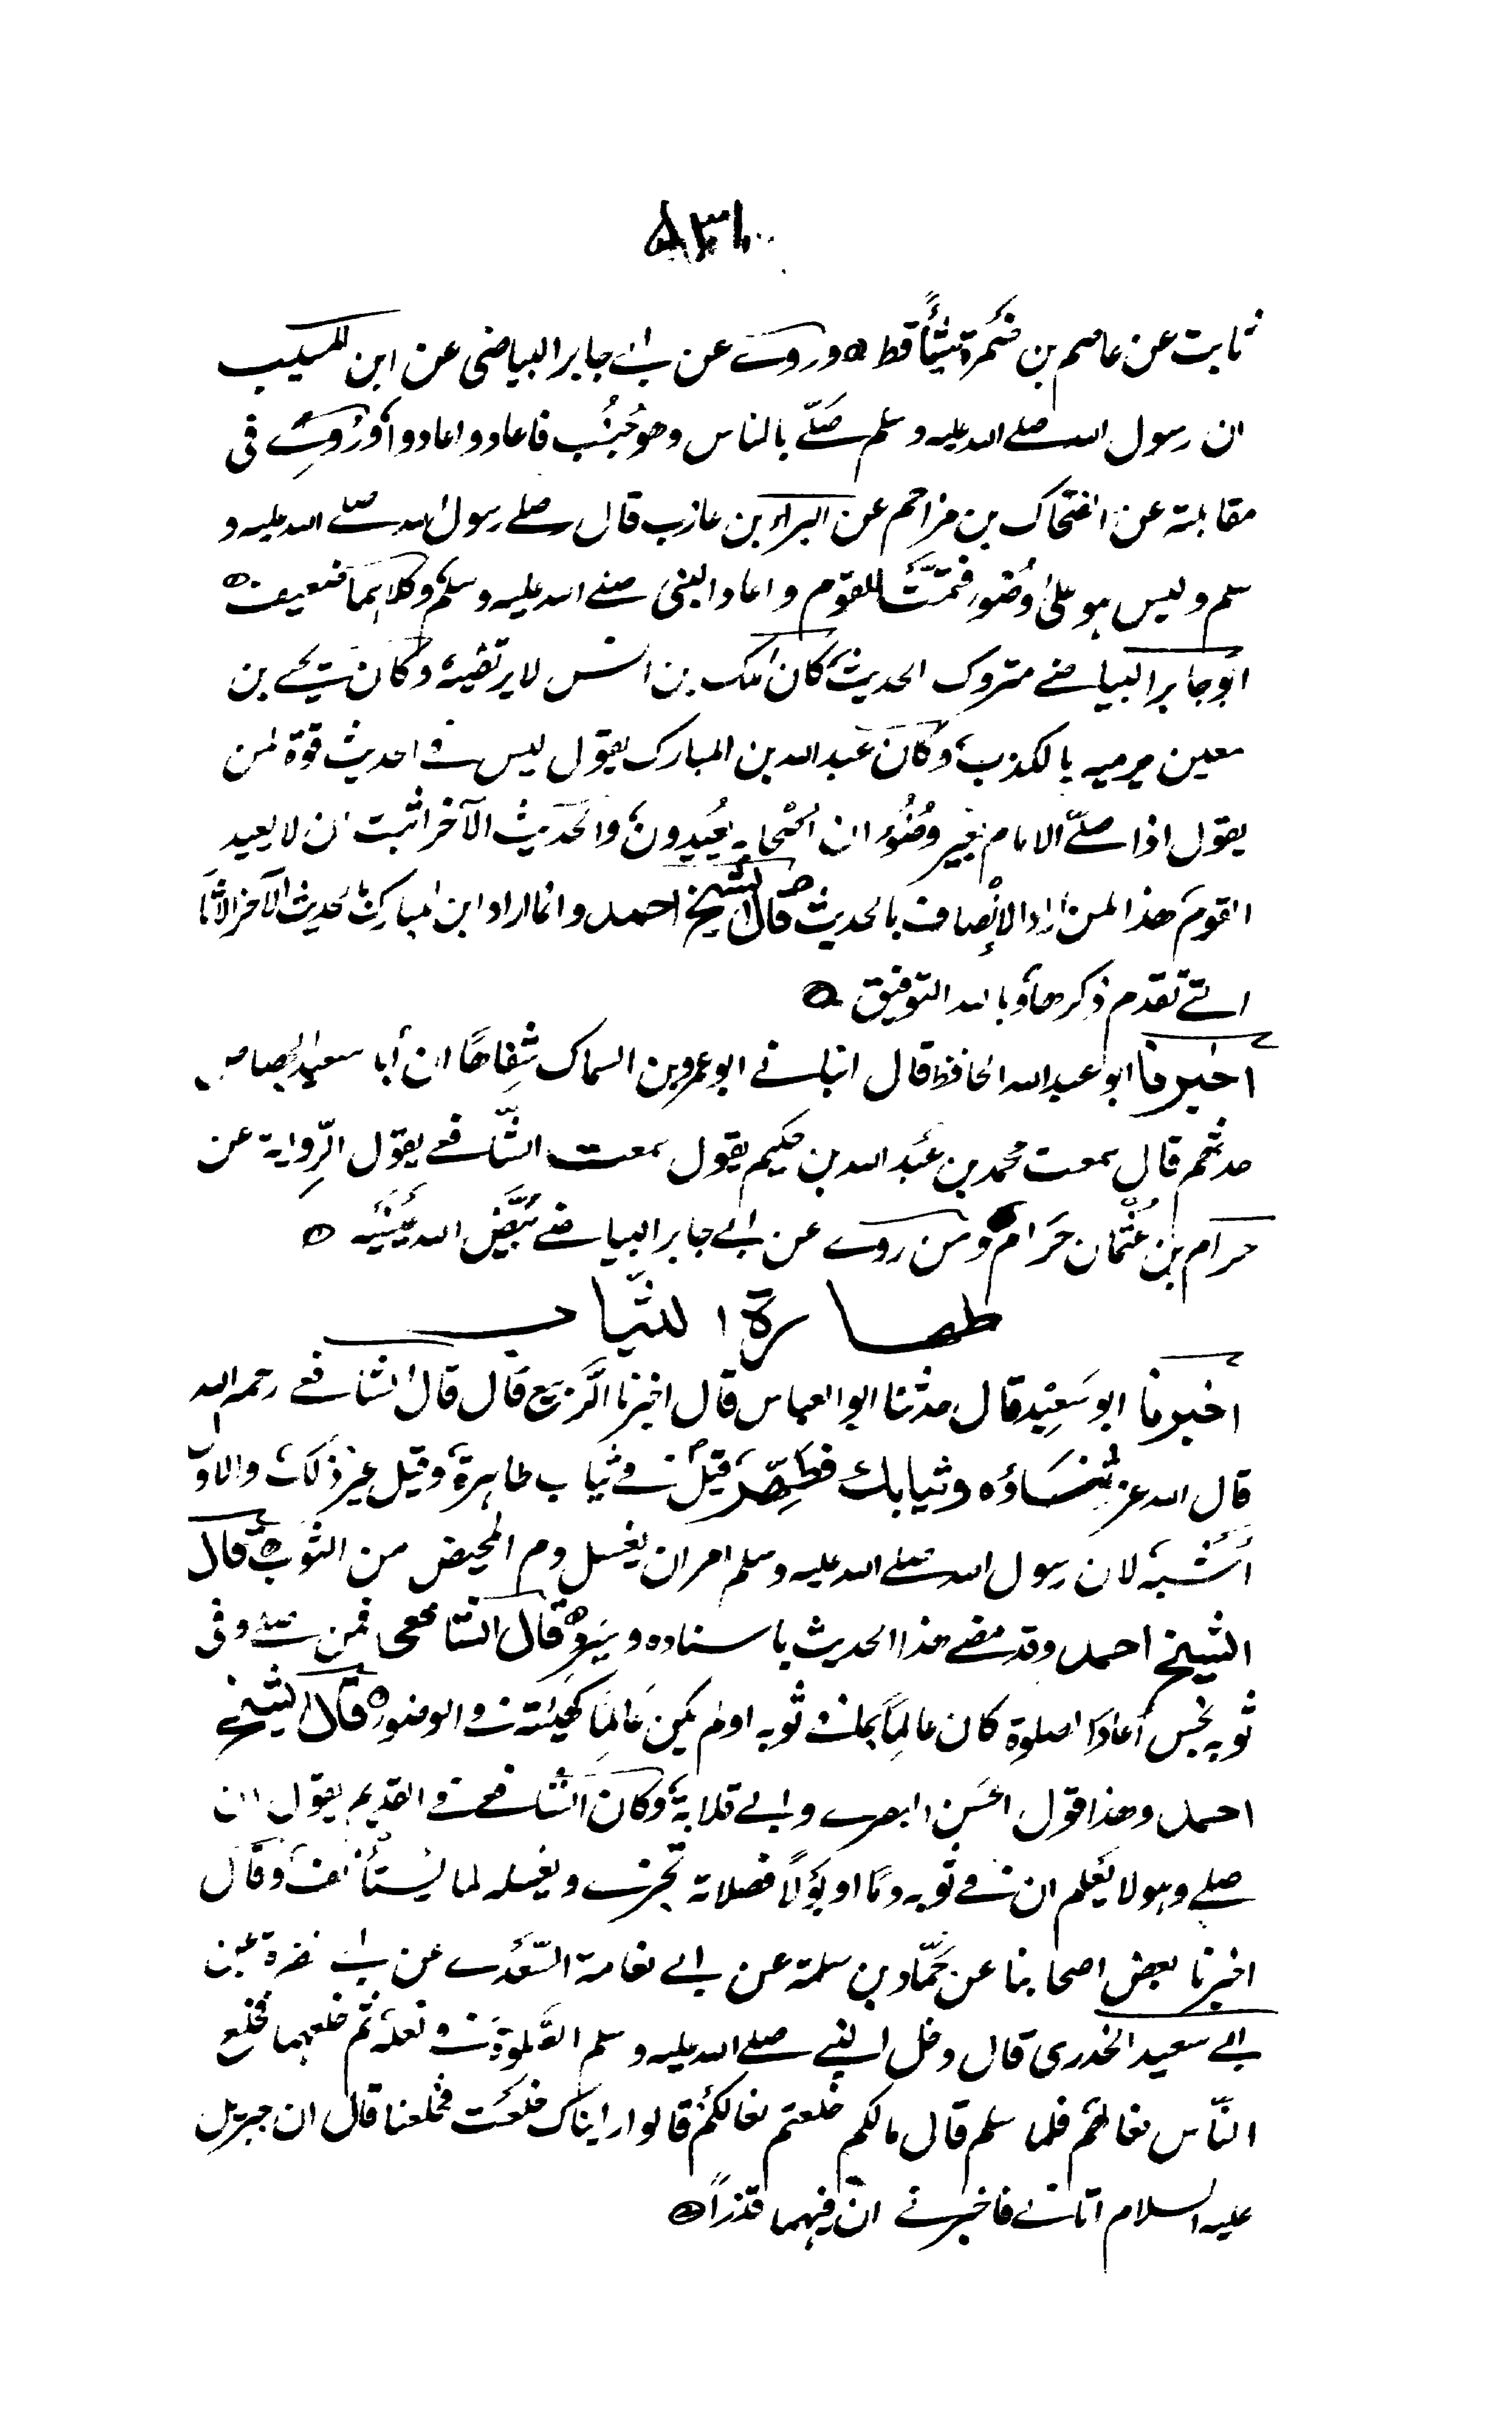 ثابت عن عاصم بن ضمرة شيئًا قط ه وروى عن ابى جابر البياضى عن ابن المسيب
ان رسول الله صلى الله عليه وسلم صلّى بالناس وهو جُنُب فاعاد واعادوا وروى فى
مقابلته عن الضحاك بن مزاحم عن البراء بن عازب قال صلى رسول الله صلى الله عليه و
سلم وليس هو على وضوء فتمّت للقوم واعاد النبى صلى الله عليه وسلم وكلاهما ضعيف ه
ابو جابر البياضى متروك الحديث كان مالك بن انس لا يرتضيه وكان يحيى بن
معين يرميه بالكذب وكان عبد الله بن المبارك يقول ليس فى الحديث قوة لمن
يقول اذا صلّى الامام بغير وضوء ان اصحابه يعيدون والحديث الآخر اثبت ان لا يعيد
القوم هذا لمن اراد الإنصاف بالحديث قال الشيخ احمد وانما اراد ابن المبارك بالحديث الآخر الآثار
التى تقدم ذكرها وبالله التوفيق ه
اخبرنا ابو عبد الله الحافظ قال انبانى ابو عمرو بن السماك شِفاهًا ان أبا سعيد الجصاص
حدثهم قال سمعت محمد بن عبد الله بن حكيم يقول سمعت الشافعى يقول الرّواية عن
حرام بن عثمان حَرام ومن روى عن ابى جابر البياضى بَيَّض الله عينيه ه
طهارة الثياب
اخبرنا ابو سعيد قال حدثنا ابو العباس قال اخبرنا الربيع قال قال الشافعى رحمه الله
قال الله عز ثناؤه وثيابك فطهّر قيل فى ثياب طاهرة وقيل غير ذلك والاوّل
أشبه لان رسول الله صلى الله عليه وسلم امر ان يغسل دم المحيض من الثوب ه قال
الشيخ احمد وقد مضى هذا الحديث باسناده ويرد ه قال الشافعى فمن صلى وفى
ثوبه نجس أعاد الصلوة كان عالمًا بما فى ثوبه او لم يكن عالمًا كهيئته فى الوضوء ه قال الشيخ
احمد وهذا قول الحسن البصرى وابى قلابة وكان الشافعى فى القديم يقول ان
صلى وهو لا يعلم ان فى ثوبه دمًا او بولًا فصلاته تجزى ويغسله لما يستأنف وقال
اخبرنا بعض اصحابنا عن حمّاد بن سلمة عن ابى نعامة السّعدى عن ابى نضرة عن
ابى سعيد الخدرى قال دخل النبى صلى الله عليه وسلم الصلوة فى نعله ثم خلعهما فخلع
النّاس نعالهم فلما سلم قال ما لكم خلعتم نعالكم قالوا رايناك خلعت فخلعنا قال ان جبريل
عليه السلام اتانى فاخبرنى ان فيهما قذرًا ه